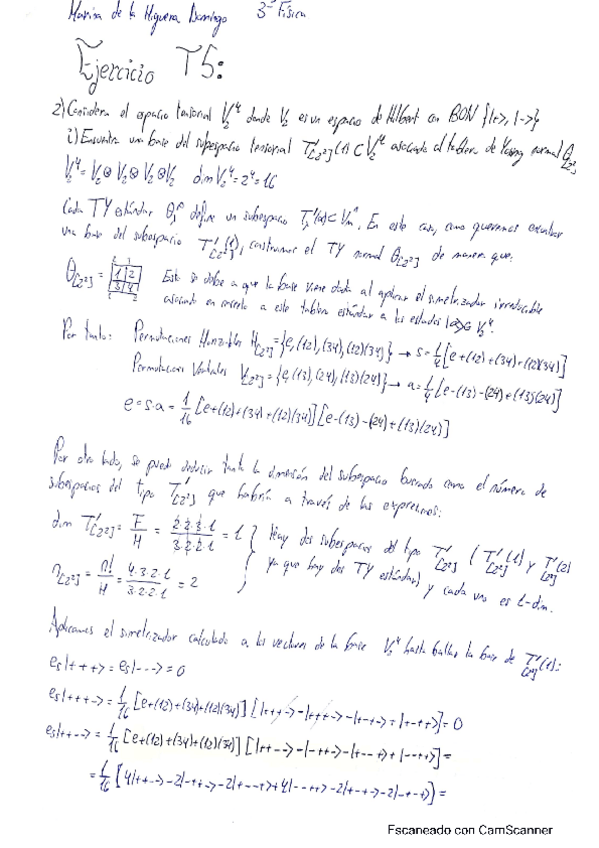 Marina de la Higuera Domingo 3º Física
Ejercicio T5:
2) Considera el espacio tensorial V₂⁴ donde V₂ es un espacio de Hilbert con BON {|+>, |->}
i) Encuentra una base del subespacio tensorial T'[2²](1) ⊂ V₂⁴ asociado al tablero de Young normal θ[2²]
V₂⁴ = V₂ ⊗ V₂ ⊗ V₂ ⊗ V₂ dim V₂⁴ = 2⁴ = 16
Cada TY estándar define un subespacio ⊂ En este caso, como queremos encontrar
una base del subespacio T'[2²](1), construimos el TY normal θ[2²] de manera que:
θ[2²] = 1 2 Esto se debe a que la base viene dada al aplicar el simetrizador irreducible
3 4 asociado en concreto a este tablero estándar a los estados |α> ∈ V₂⁴.
Por tanto: Permutaciones Horizontales H[2²] = {e, (12), (34), (12)(34)} → s = 1/4 [e+(12)+(34)+(12)(34)]
Permutaciones Verticales V[2²] = {e, (13), (24), (13)(24)} → a = 1/4 [e-(13)-(24)+(13)(24)]
e = s·a = 1/16 [e+(12)+(34)+(12)(34)] [e-(13)-(24)+(13)(24)]
Por otro lado, se puede deducir tanto la dimensión del subespacio buscado como el número de
subespacios del tipo T'[2²] que habría a través de las expresiones:
dim T'[2²] = F/H = 2·2·3·1/3·2·2·1 = 1 Hay dos subespacios del tipo T'[2²] (T'[2²](1) y T'[2²](2)
n[2²] = n!/H = 4·3·2·1/3·2·2·1 = 2 ya que hay dos TY estándar) y cada uno es 1-dim.
Aplicamos el simetrizador calculado a los vectores de la base V₂⁴ hasta hallar la base de T'[2²](1):
= 0
= 1/16 [e+(12)+(34)+(12)(34)] = 0
es|++--> = 1/16 [e+(12)+(34)+(12)(34)] [|++--> - |-++-> - |+--+> + |--++>] =
= 1/16 [4|++--> - 2|-++-> - 2|+--+> + 4|--++> - 2|+-+-> - 2|-+-+>] =
Escaneado con CamScanner